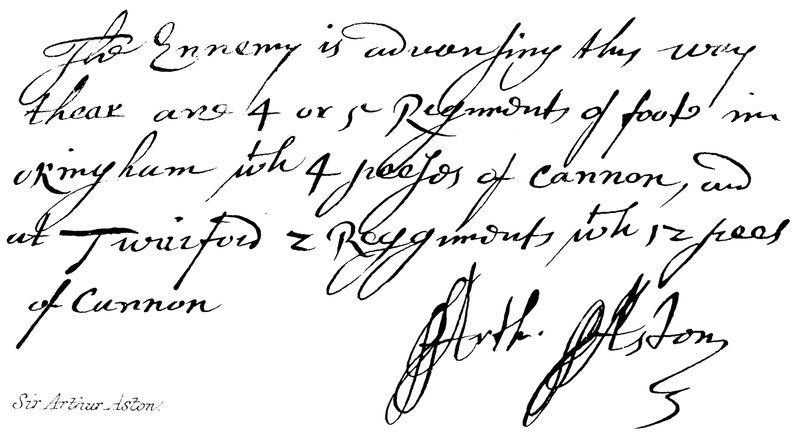 The Ennemy is advansing this way
thear are 4 or 5 Regiments of foote in
okingham wth 4 peeses of cannon, and
at Twiiford 2 Reggiments wth 12 pees
of Cannon
Arth. Aston
Sir Arthur Aston.